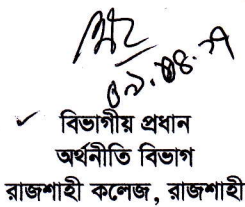 ০৯.০৪.২
বিভাগীয় প্রধান
অর্থনীতি বিভাগ
রাজশাহী কলেজ, রাজশাহী